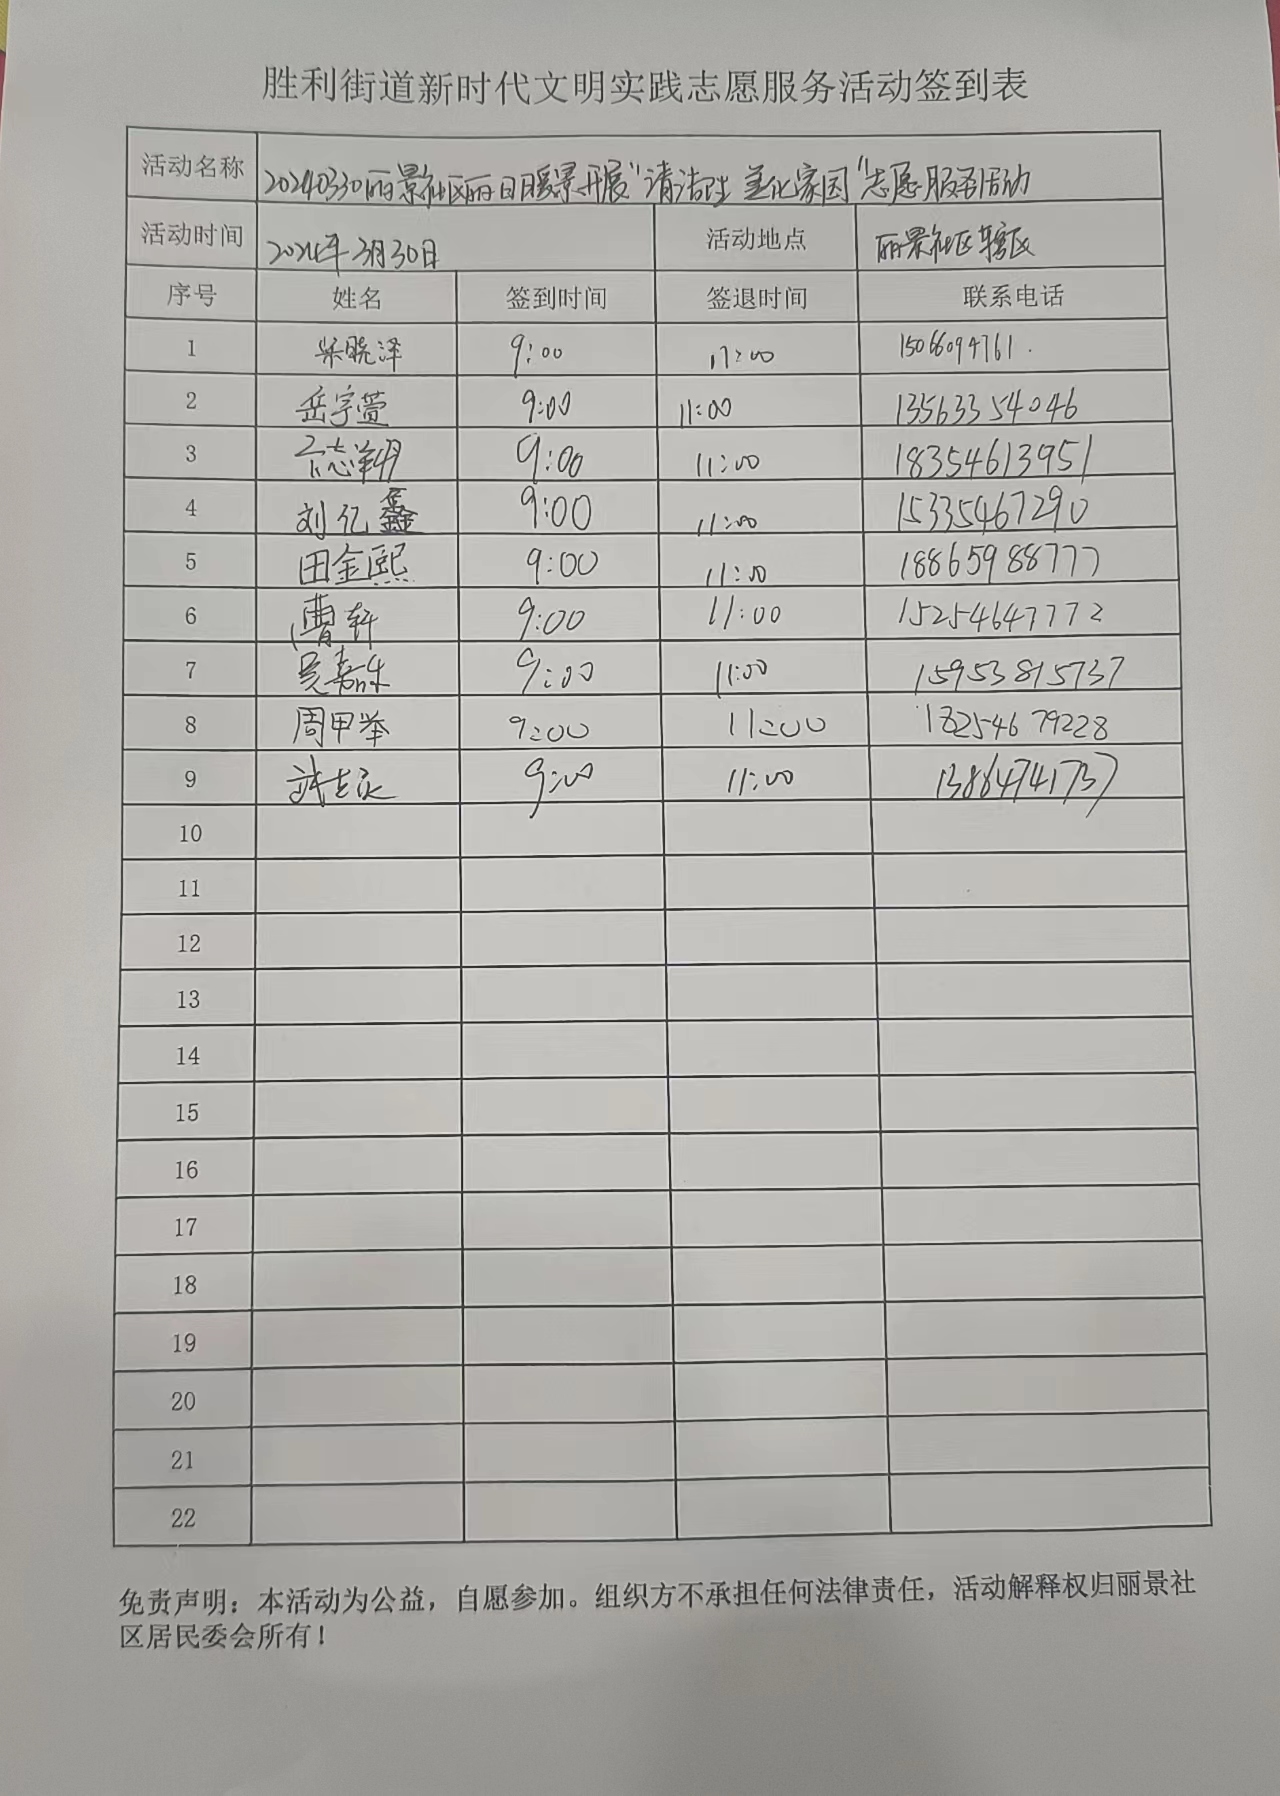 胜利街道新时代文明实践志愿服务活动签到表
活动名称 20240330丽景社区丽日暖景开展"清洁卫生 美化家园"志愿服务活动
活动时间 2024年3月30日 活动地点 丽景社区辖区
序号 姓名 签到时间 签退时间 联系电话
1 梁晓泽 9:00 11:00 15066094761
2 岳宇萱 9:00 11:00 13563354046
3 志翔 9:00 11:00 18354613951
4 刘亿鑫 9:00 11:00 15335467290
5 田金熙 9:00 11:00 18865988777
6 曹轩 9:00 11:00 15254647772
7 吴嘉乐 9:00 11:00 15953815737
8 周甲举 9:00 11:00 18254679228
9 武志 9:00 11:00 13864741737
10
11
12
13
14
15
16
17
18
19
20
21
22
免责声明：本活动为公益，自愿参加。组织方不承担任何法律责任，活动解释权归丽景社
区居民委会所有！